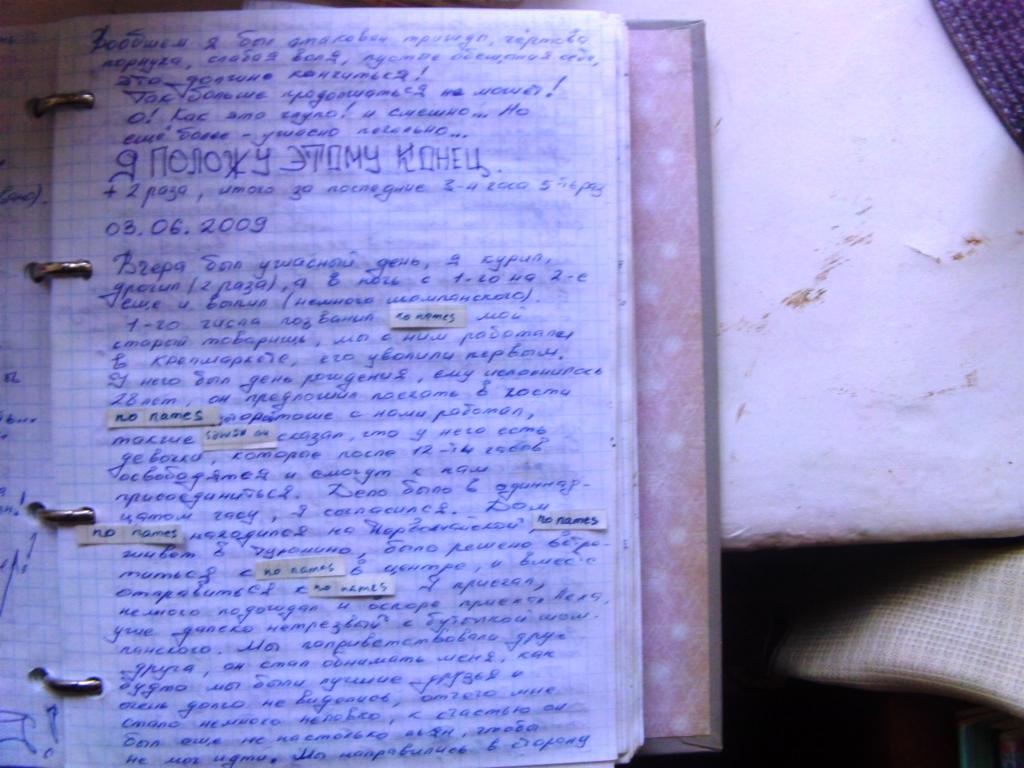 Вообщем я был атакован трижды, чёртова
порнуха, слабая воля, пустые обещания себе,
это должно кончиться!
Так больше продолжаться не может!
О! Как это глупо! и смешно... Но
ещё более - ужасно печально...
Я ПОЛОЖУ ЭТОМУ КОНЕЦ.
+ 2 раза, итого за последние 3-4 часа 5-ть раз
03.06.2009
Вчера был ужасный день, я курил,
дрочил (2 раза), а в ночь с 1-го на 2-е
еще и выпил (немного шампанского).
1-го числа позвонил no names мой
старый товарищь, мы с ним работали
в крепмаркете, его уволили первым.
У него был день рождения, ему исполнилось
28 лет, он предложил поехать в гости
no names тоже с нами работал,
также сказал, что у него есть
девочки, которые после 12-ти часов
освободятся и смогут к нам
присоединиться. Дело было в одиннад-
цатом часу, я согласился. Дом
no names находился на no names
живет в Купчино, было решено встре-
титься с no names в центре, и вместе
отправиться к no names Я приехал,
немного подождал и вскоре приехал Леха,
уже далеко нетрезвый с бутылкой шам-
панского. Мы поприветствовали друг
друга, он стал обнимать меня, как
будто мы были лучшие друзья и
очень долго не виделись, отчего мне
стало немного неловко, к счастью он
был еще не настолько пьян, чтобы
не мог идти. Мы направились в сторону